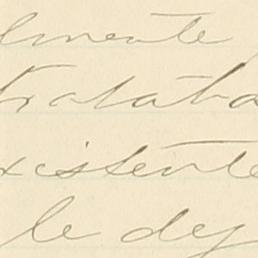 lmente
trataba
xistente
le dej